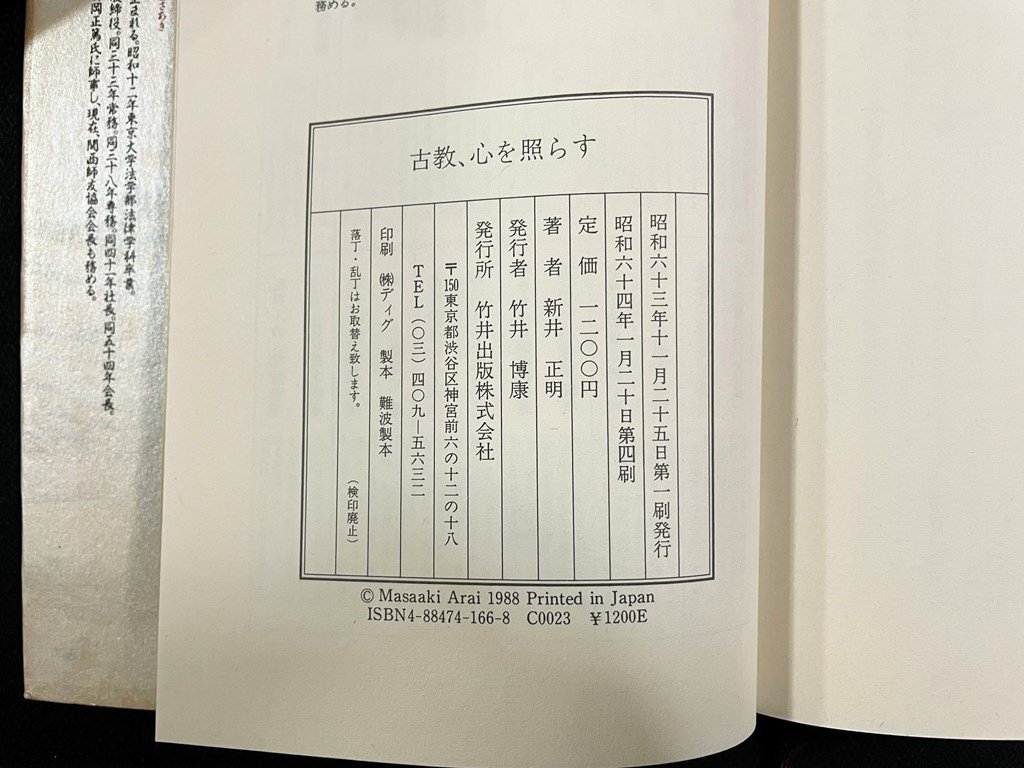 務める。
古教、心を照らす
昭和六十三年十一月二十五日第一刷発行
昭和六十四年一月二十日第四刷
定価 一二〇〇円
著者 新井 正明
発行者 竹井 博康
発行所 竹井出版株式会社
〒150東京都渋谷区神宮前六の十二の十八
TEL(〇三)四〇九―五六三二
印刷 ㈱ディグ 製本 難波製本
落丁・乱丁はお取替え致します。 (検印廃止)
© Masaaki Arai 1988 Printed in Japan
ISBN4-88474-166-8 C0023 ¥1200E
まれる。昭和十二年東京大学法学部法律学科卒業。
締役。同三十三年常務。同三十八年専務。同四十一年社長。同五十四年会長。
岡正篤氏に師事し、現在、関西師友協会会長も務める。